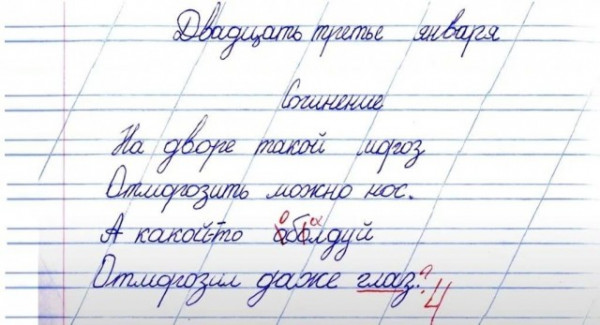 Двадцать третье января
Сочинение
На дворе такой мороз
Отморозить можно нос.
А какой-то оболдуй
Отморозил даже глаз. ?
4